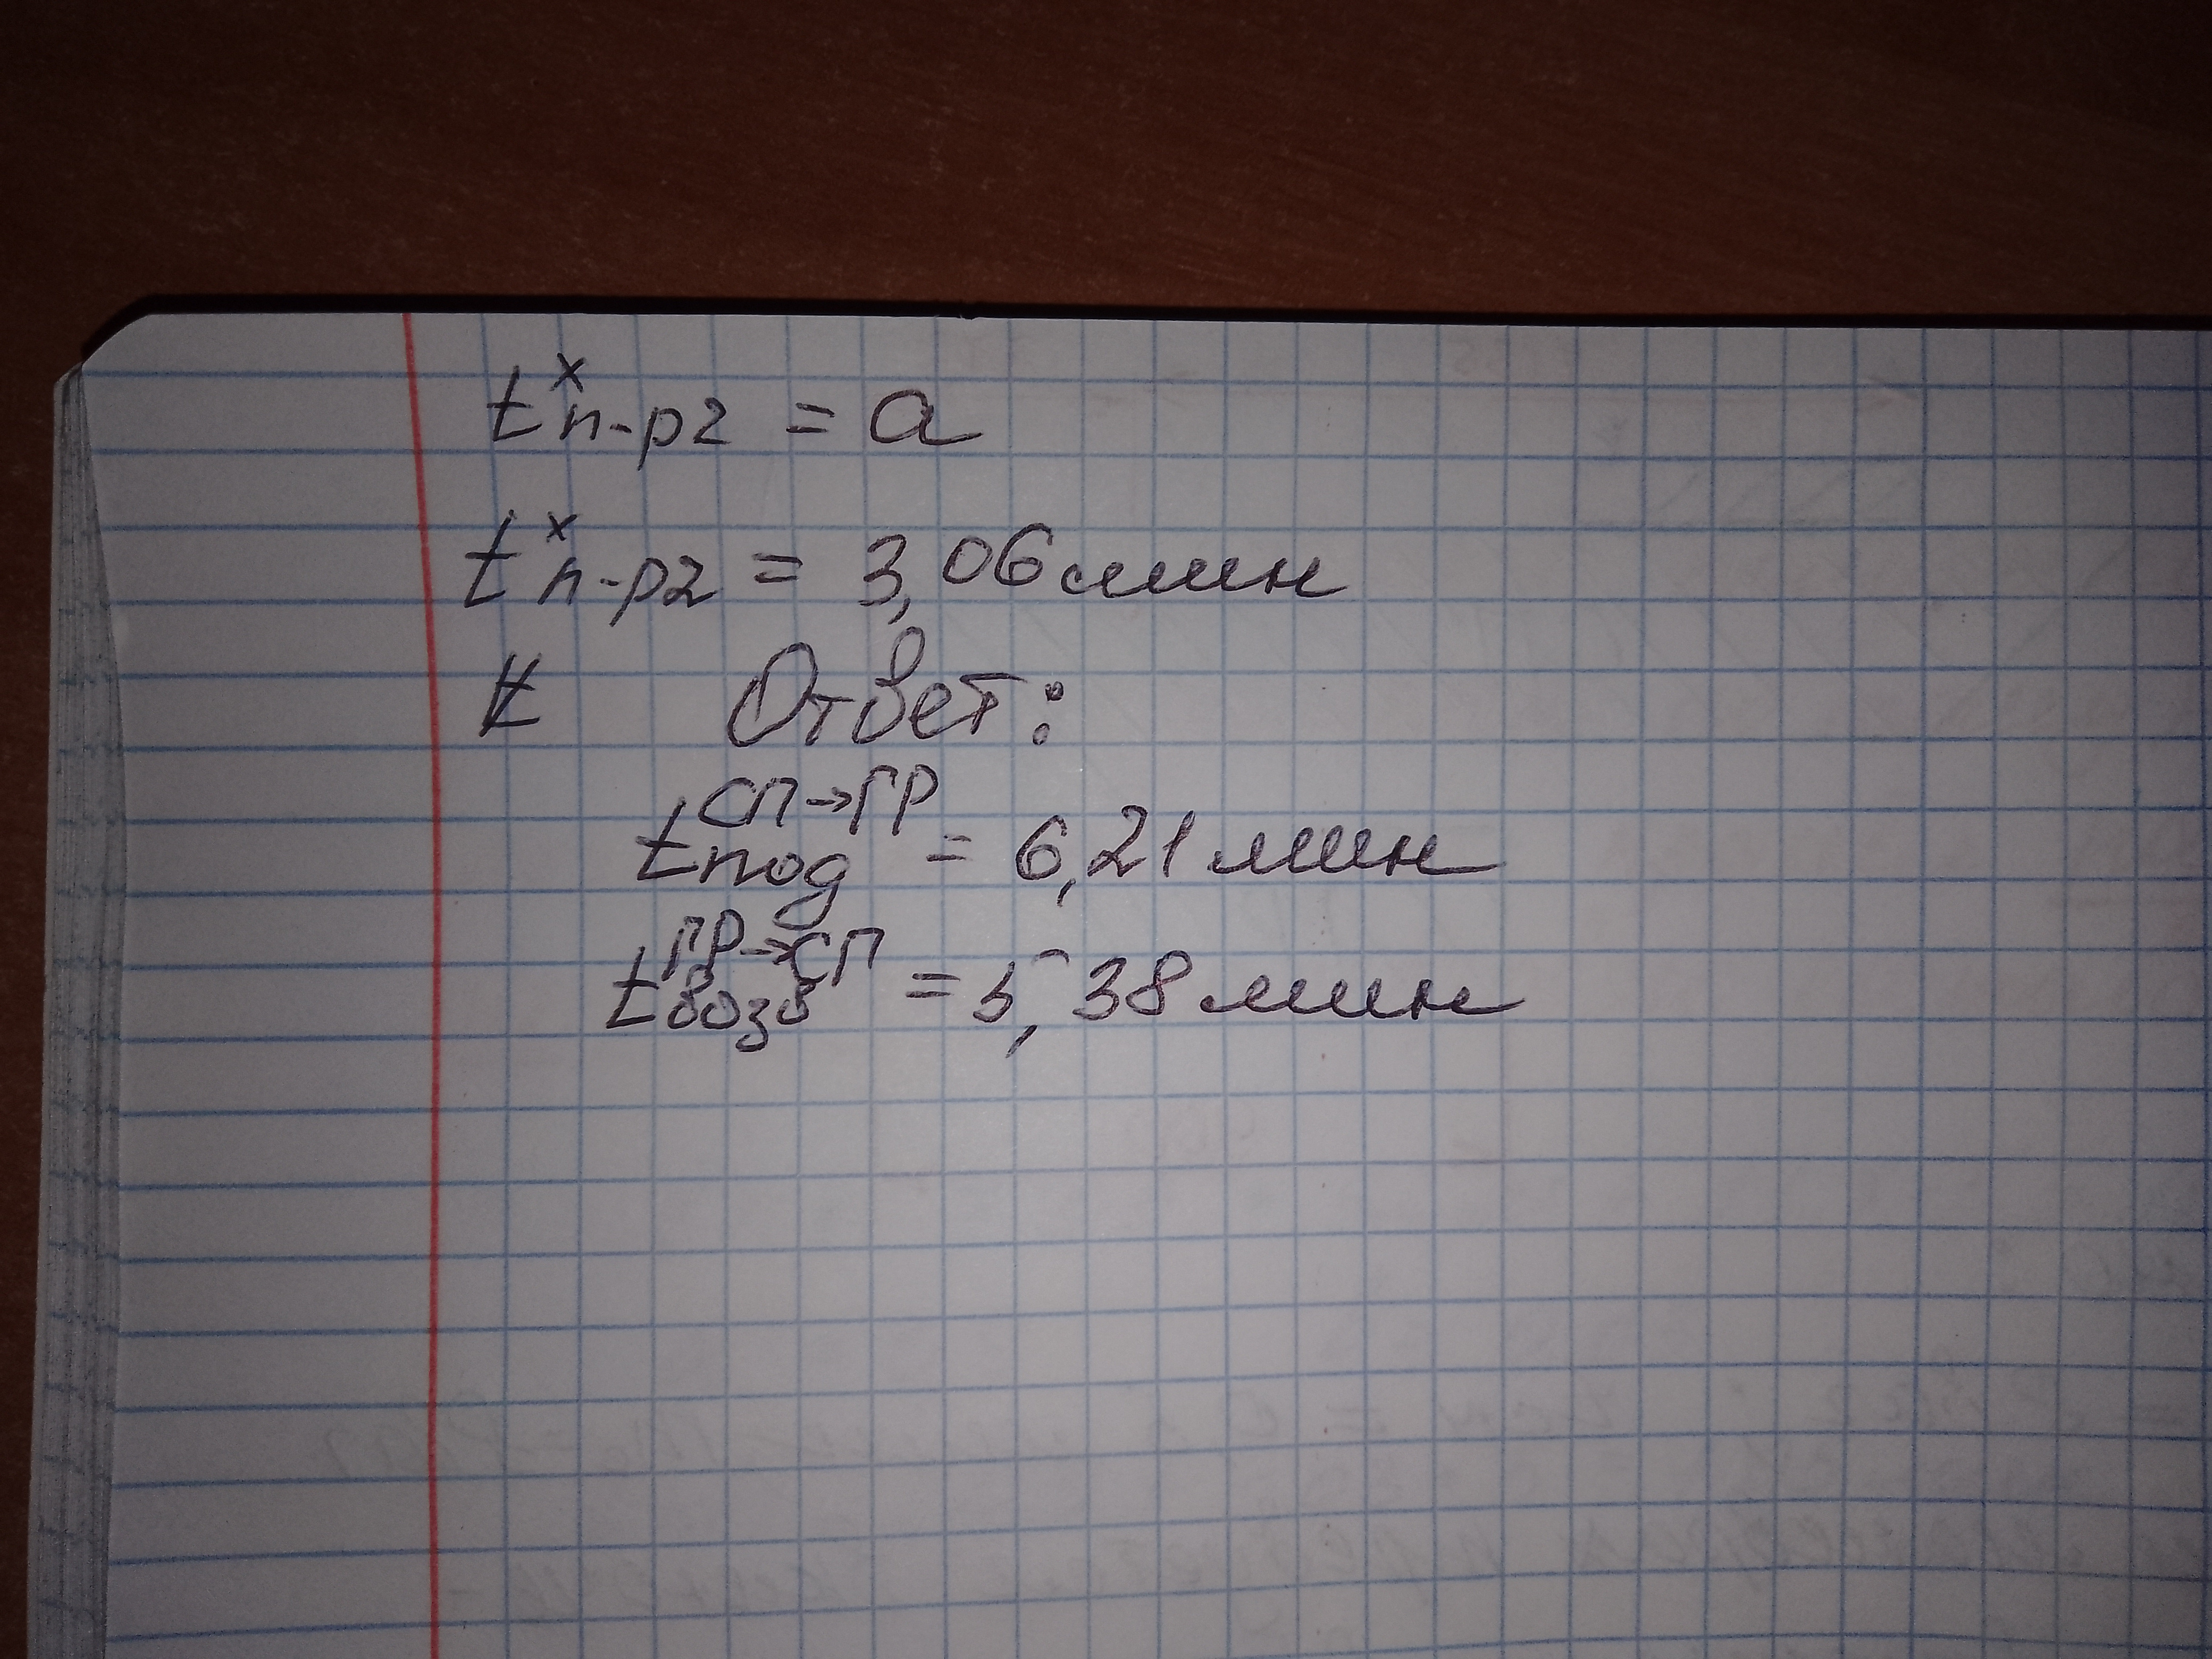 t^x_п-р2 = a
t^x_п-р2 = 3,06 мин
Ответ:
t^СП→ГР_под = 6,21 мин
t^ГР→СП_возв = 5,38 мин